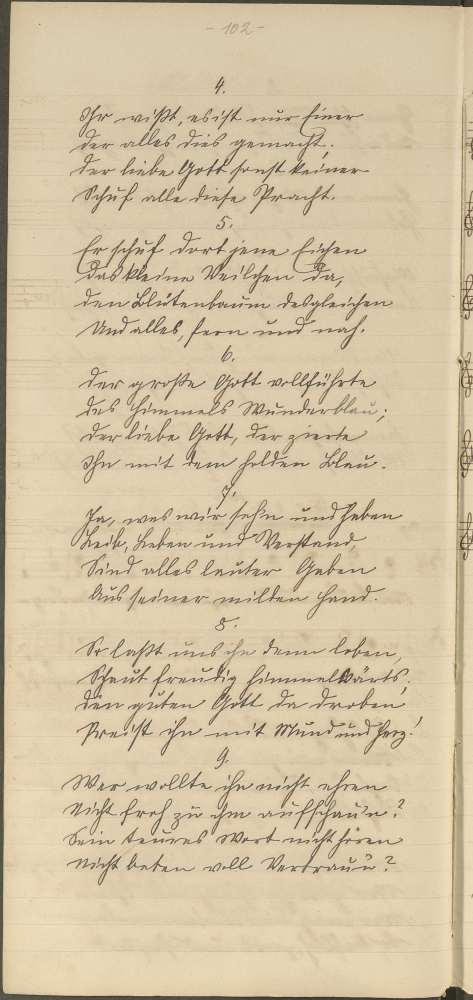 - 102 -
4.
Ihr wißt, es ist nur Einer
Der alles dies gemacht,
Der liebe Gott sonst keiner
Schuf alle diese Pracht.
5.
Er schuf dort jene Eichen
Das kleine Veilchen da,
Den Blütenbaum desgleichen
Und alles, fern und nah.
6.
Der große Gott vollführte
Des Himmels Wunderblau;
Der liebe Gott, der zierte
Ihn mit dem holden Blau.
7.
Ja, was wir sehn und haben
Leib, Leben und Verstand,
Sind alles lauter Gaben
Aus seiner milden Hand.
8.
So laßt uns ihn denn loben,
Schaut freudig himmelwärts,
Den guten Gott da droben
Preist ihn mit Mund und Herz!
9.
Wer wollte ihn nicht ehren
Nicht froh zu ihm aufschau'n?
Sein teures Wort nicht hören
Nicht beten voll Vertrau'n?